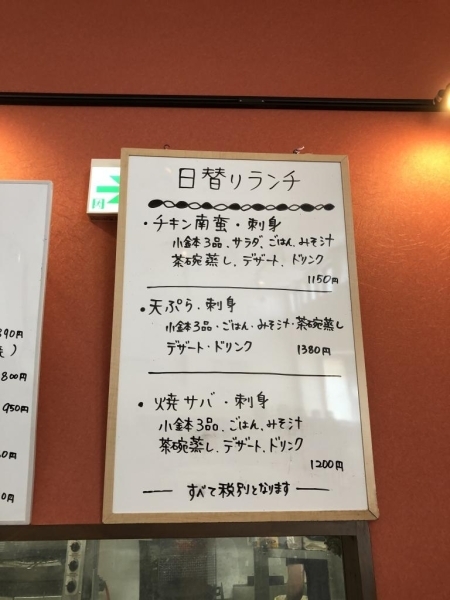 日替りランチ
・チキン南蛮・刺身
小鉢3品、サラダ、ごはん、みそ汁
茶碗蒸し、デザート、ドリンク
1150円
・天ぷら・刺身
小鉢3品・ごはん・みそ汁・茶碗蒸し
デザート・ドリンク 1380円
・焼サバ・刺身
小鉢3品、ごはん、みそ汁
茶碗蒸し、デザート、ドリンク
1200円
すべて税別となります
890円
)
800円
950円
0円
0円